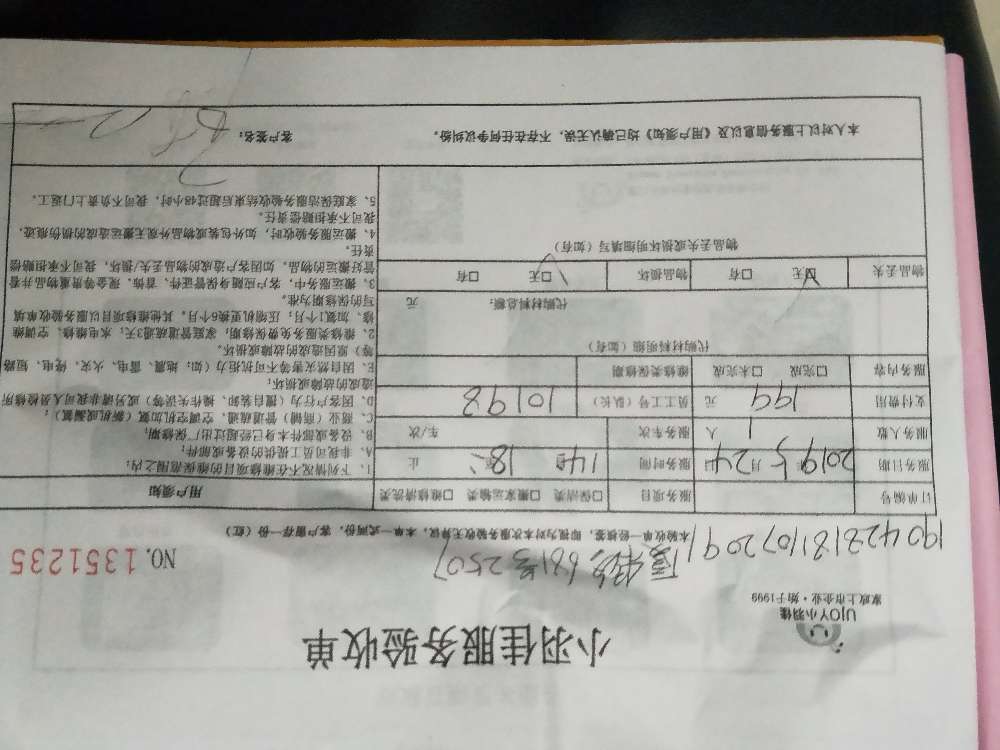 小羽佳服务验收单
UJOY小羽佳
家政上市企业·始于1999
681号2507
NO. 1351235
19042818107209
本验收单一经签署,即视为对本次服务验收无异议,本单一式两份,客户留存一份(红)
订单编号 服务项目 □保洁类 □搬家运输类 □维修清洗类
服务日期 2019年5月24日 服务时间 14 至 18: 止
服务人数 1 人 服务车次 车/次
支付费用 199 元 员工工号(队长) 10198
服务内容 □完成 □未完成 维修类保修期
代购材料明细(如有)
代购材料总额: 元
物品丢失 ☑无 □有 物品损坏 ☑无 □有
物品丢失或损坏明细填写(如有)
用户须知
1、下列情况不在维修项目的维保范围之内:
A、非我司员工提供的设备或部件;
B、设备或部件本身已经超过出厂保修期;
C、商业(商铺)管道疏通、空调空机加氟(新机或漏氟);
D、因客户行为(擅自装卸、操作失误等)或另请非我司人员检修所
造成的故障或损坏;
E、因自然灾害等不可抗拒力(如:地震、雷电、火灾、停电、短路
等)原因造成的故障或损坏。
2、维修类服务免费保修期:家庭管道疏通3天;水电维修、空调维
修、加氟1个月;压缩机更换6个月。其他维修项目以服务验收单填
写的保修期为准。
3、搬运服务中,客户应随身保管证件、首饰、现金等贵重物品并看
管好搬运的物品,如因客户造成的物品丢失/损坏,我司不承担赔偿
责任。
4、搬运服务验收时,如外包装或物品外观无搬运造成的损伤痕迹,
我司不承担赔偿责任。
5、家庭保洁服务验收结束后超过48小时,我司不负责上门返工。
本人对以上服务信息以及《用户须知》均已确认无误,不存在任何争议纠纷。 客户签名: